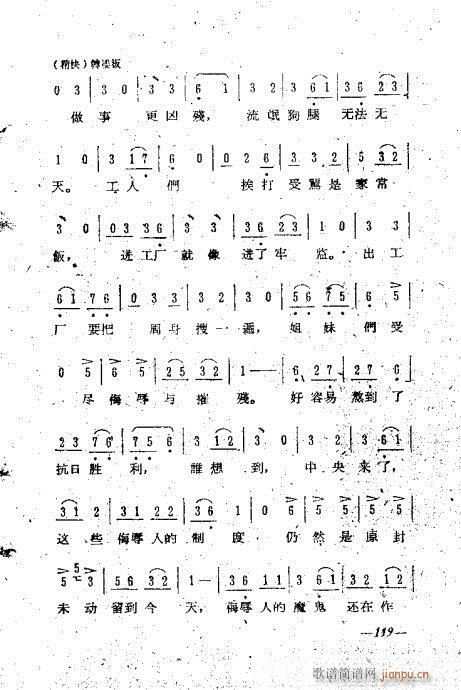 (稍快)轉楼板
0 3 | 3 0 | 3 3 | 6 1 | 3 2 | 3 61 | 36 23 |
做事 更凶殘, 流氓狗腿 无法无
1 0 | 3 17 | 6 0 | 0 26 | 3 3 | 5 32 |
天。 工人們 挨打受罵是家常
3 0 | 03 33 36 | 3 3 | 36 23 | 1 0 | 3 3 |
飯, 进工厂就像 进了牢 监。 出工
61 76 | 0 3 | 3 3 | 6 1 2 | 3 0 | 56 75 | 6 5 |
厂 要把 周身搜一遍, 姐妹們受
0 5 | 6 5 | 25 32 | 1 — | 6 27 | 2 7 | 27 6 |
尽侮辱与摧 残。 好容易熬到了
23 76 | 7 5 6 | 3 12 | 3 0 | 3 3 | 3 61 |
抗日胜利, 誰想到, 中央来了,
31 2 | 33 21 | 2 12 | 3 — | 0 5 | 5 5 | 6 5 |
这些侮辱人的制度 仍然是原封
5 3 | 56 32 | 1 — | 36 31 | 3 61 | 32 12 |
未动留到今天, 侮辱人的魔鬼 还在作
—119—
歌谱简谱网
jianpu.cn